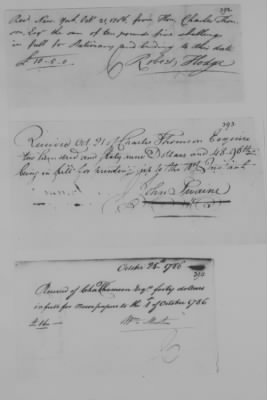 392
Recd New York Octr 21, 1786 from Hon. Charles Thom-
son Esqr the sum of ten pounds five shillings
in full for Stationary and binding to this date
£10-5-0 Robert Hodge
393
Received Oct. 21 of Charles Thomson Esquire
two hundred and sixty nine Dollars and 48.90ths
being in full for printing up to the Instant
John Swaine
October 26th 1786
394
Received of Chas Thomson Esqr forty dollars
in full for News papers to the 1st of October 1786
£16